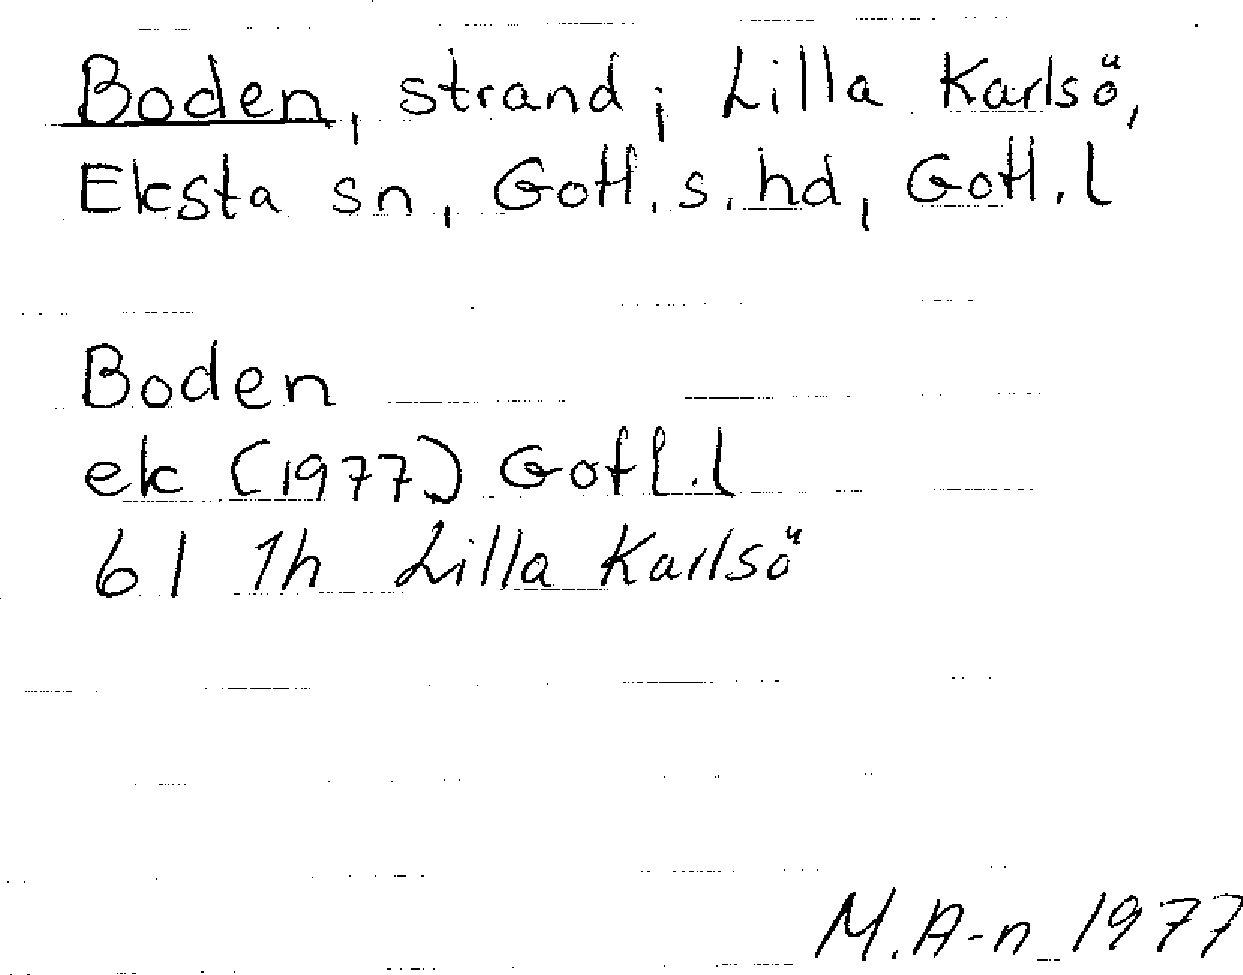 Boden, strand; Lilla Karlsö,
Eksta sn, Gotl. s. hd, Gotl. l
Boden
ek (1977) Gotl. l
6 I 1h Lilla Karlsö
M. A-n 1977